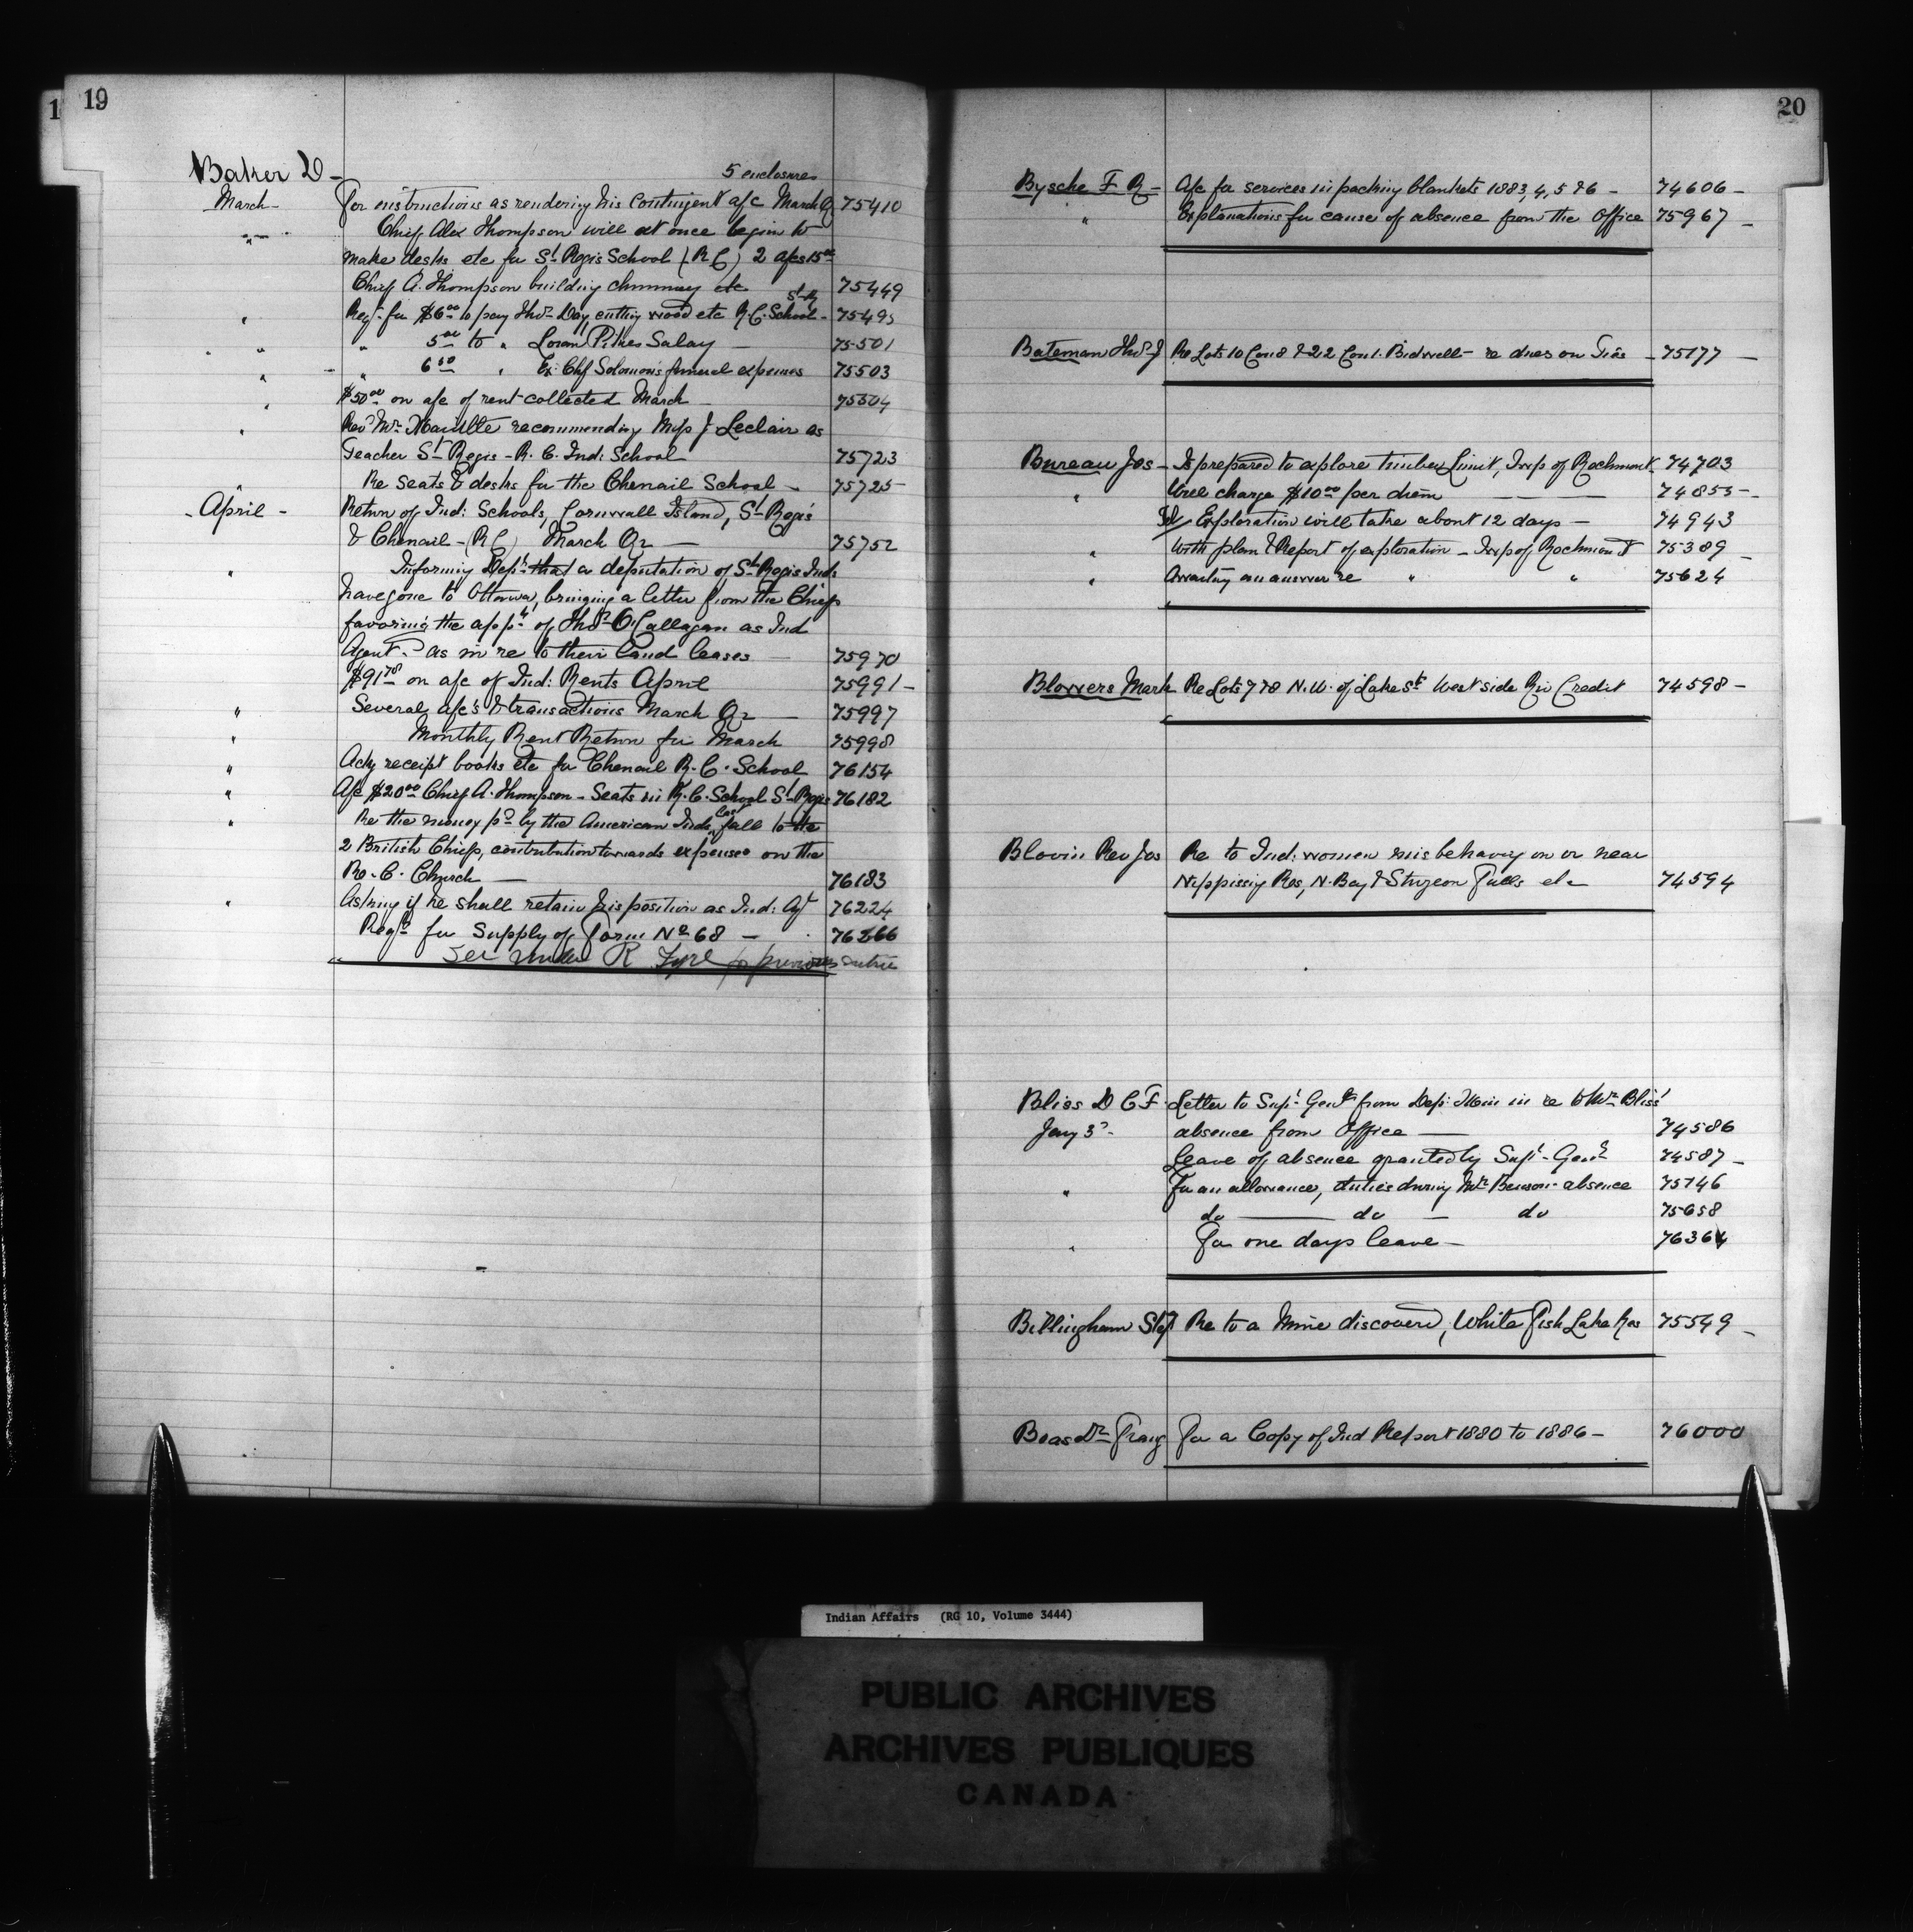 1 19
Baker D -
5 enclosures
March - For instructions as rendering his Contingent a/c March Qr 75410
" Chief Alex Thompson will at once begin to
make desks etc for St Regis School (R C) 2 a/cs 15 00
Chief A. Thompson building chimney etc 75449
St R
" Reqn for $6 00 to pay Thos Day cutting wood etc R.C. School - 75495
" " " 5 00 to " Loran Pitres Salary — 75501
" " 6 50 " Ex Chf Solomon's funeral expenses 75503
" $50 00 on a/c of rent collected March 75504
" Revd Mr Mainville recommending Miss J. Leclair as
Teacher St Regis - R. C. Ind: School 75723
" Re seats & desks for the Chenail School - 75725
- April - Return of Ind: Schools, Cornwall Island, St Regis
& Chenail - (R C) March Qr — 75752
" Informing Dept that a deputation of St Regis Inds
have gone to Ottawa, bringing a letter from the Chiefs
favoring the appt of Thos O'Callagan as Ind
Agent - as in re to their land leases — 75970
$91 78 on a/c of Ind: Rents April 75991 -
" Several a/c's & transactions March Qr — 75997
" Monthly Rent Return for March 75998
" Ackg receipt books etc for Chenail R. C. School 76154
" A/c $20 00 Chief A. Thompson - Seats in R.C. School St Regis 76182
" Re the money pd by the American Inds last fall to the
2 British Chiefs, contribution towards expenses on the
Ro. C. Church — 76183
" Asking if he shall retain his position as Ind: Agt 76224
Reqn for Supply of Form No 68 — 76266
See under R Tyre for previous entries
20
Bysche F R - A/c for services in packing blankets 1883, 4, 5 & 6 - 74606 -
" Explanations for cause of absence from the Office 75967 -
Bateman Thos J Re Lots 10 Con 8 & 22 Con 1. Bidwell - re dues on Ties - 75177 -
Bureau Jos - Is prepared to explore timber Limit, Twp of Rochmont 74703
" Will charge $10 00 per diem — — 74855 -
Tel/ Exploration will take about 12 days — 74943
" With plan & Report of exploration - Twp of Rochmont 75389 -
" Awaiting an answer re " " 75624
Blowers Mark Re Lots 7 & 8 N. W. of Lake St West side Riv Credit 74598 -
Blovin Rev Jos Re to Ind: women misbehaving on or near
Nippissig Res, N. Bay & Sturgeon Falls etc 74594
Bliss D C F. Letter to Supt Genl from Dep: Min in re to Mr Bliss'
Jany 3d - absence from Office — 74586
Leave of absence granted by Supt - Genl 74587 -
" For an allowance, duties during Mr Benson absence 75746
do — do — do 75658
" For one days leave - 76364
Billingham Step Re to a Mine discovered, White Fish Lake Res 75549 -
Boas Dr Franz For a Copy of Ind Report 1880 to 1886 - 76000
Indian Affairs (RG 10, Volume 3444)
PUBLIC ARCHIVES
ARCHIVES PUBLIQUES
CANADA